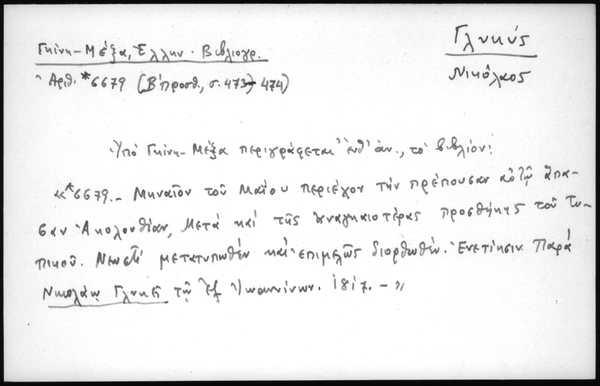 Γλυκύς
Νικόλαος
Γκίνη-Μέξα, Ἑλλην. Βιβλιογρ.
Ἀριθ. *6679 (Β' προσθ., σ. 473-474)
Ὑπό Γκίνη-Μέξα περιγράφεται ἐνθ' ἀν., τό βιβλίον:
«*6679.- Μηναῖον τοῦ Μαΐου περιέχον τήν πρέπουσαν αὐτῷ ἅπα-
σαν Ἀκολουθίαν, Μετά καί τῆς ἀναγκαιοτέρας προσθήκης τοῦ Τυ-
πικοῦ. Νεωστί μετατυπωθέν καί ἐπιμελῶς διορθωθέν. Ἐνετίησιν Παρά
Νικολάῳ Γλυκεῖ τῷ ἐξ Ἰωαννίνων. 1817. - »